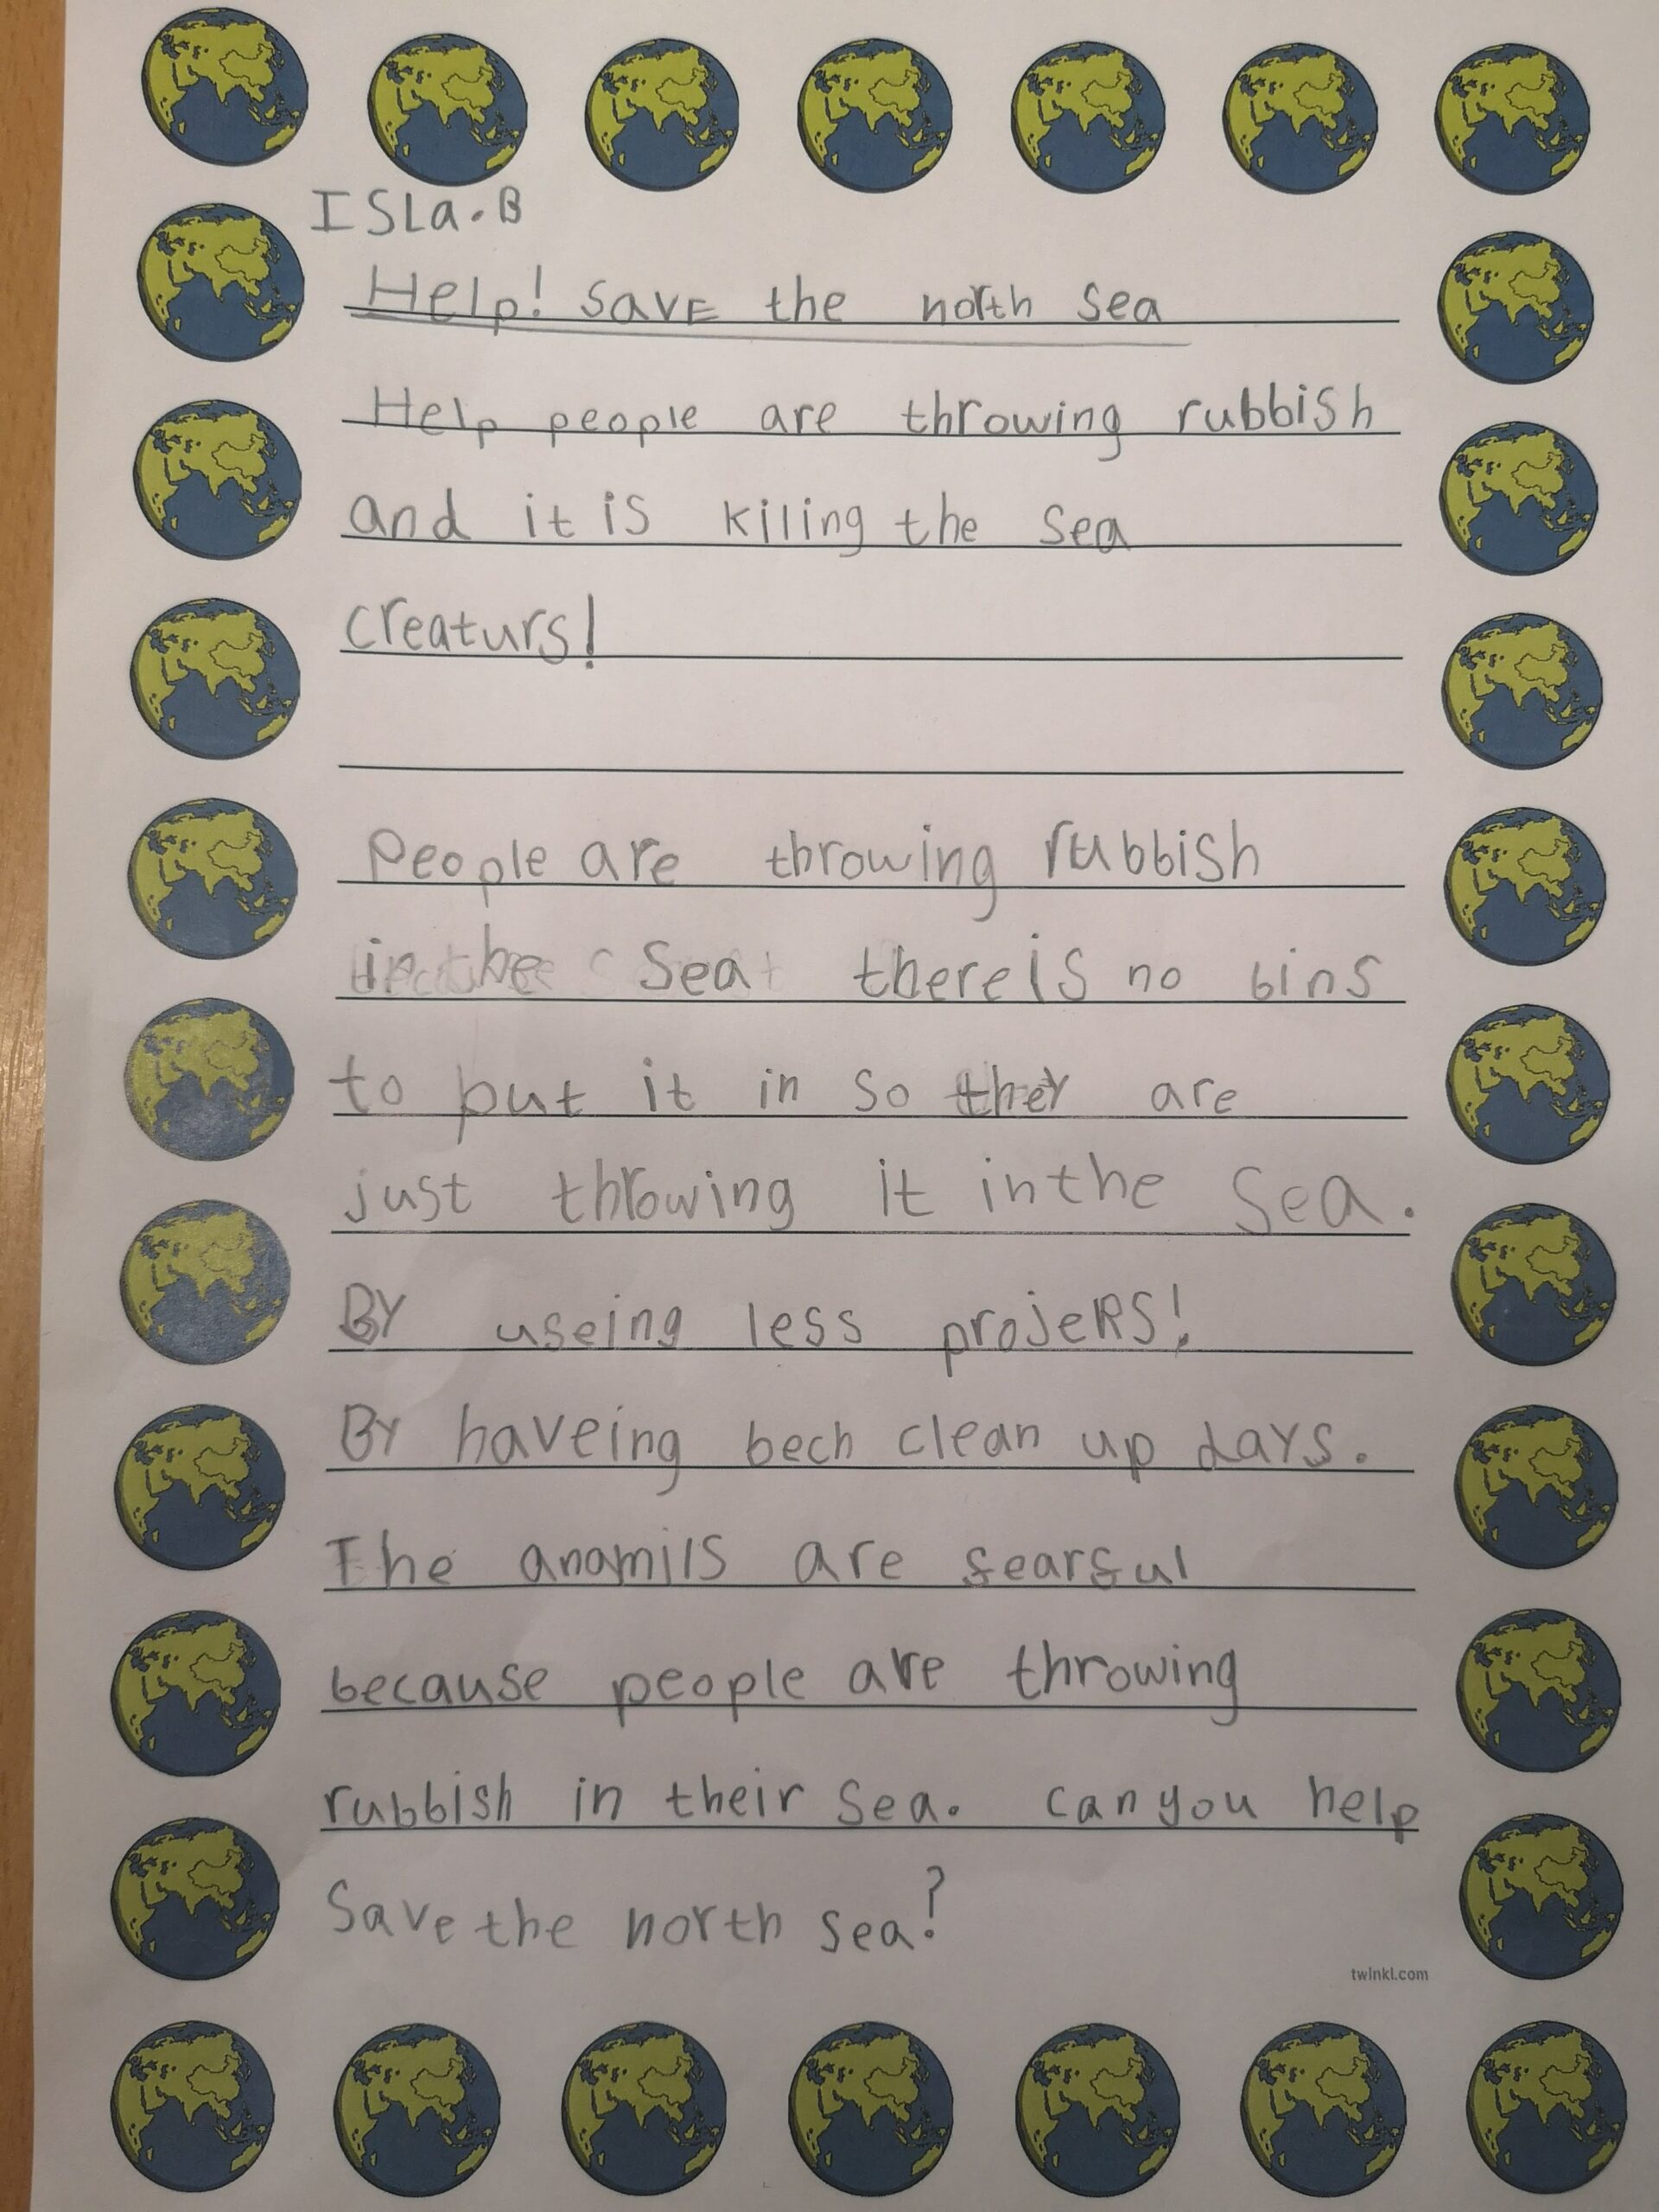 ISLa.B
Help! SaVE the north Sea
Help people are throwing rubbish
and it is kiling the Sea
creaturs!
People are throwing rubbish
in the Sea there is no bins
to put it in so they are
just throwing it in the Sea.
BY useing less projeRS!
BY haveing bech clean up days.
The anamils are fearful
because people are throwing
rubbish in their Sea. can you help
Save the north sea?
twinkl.com